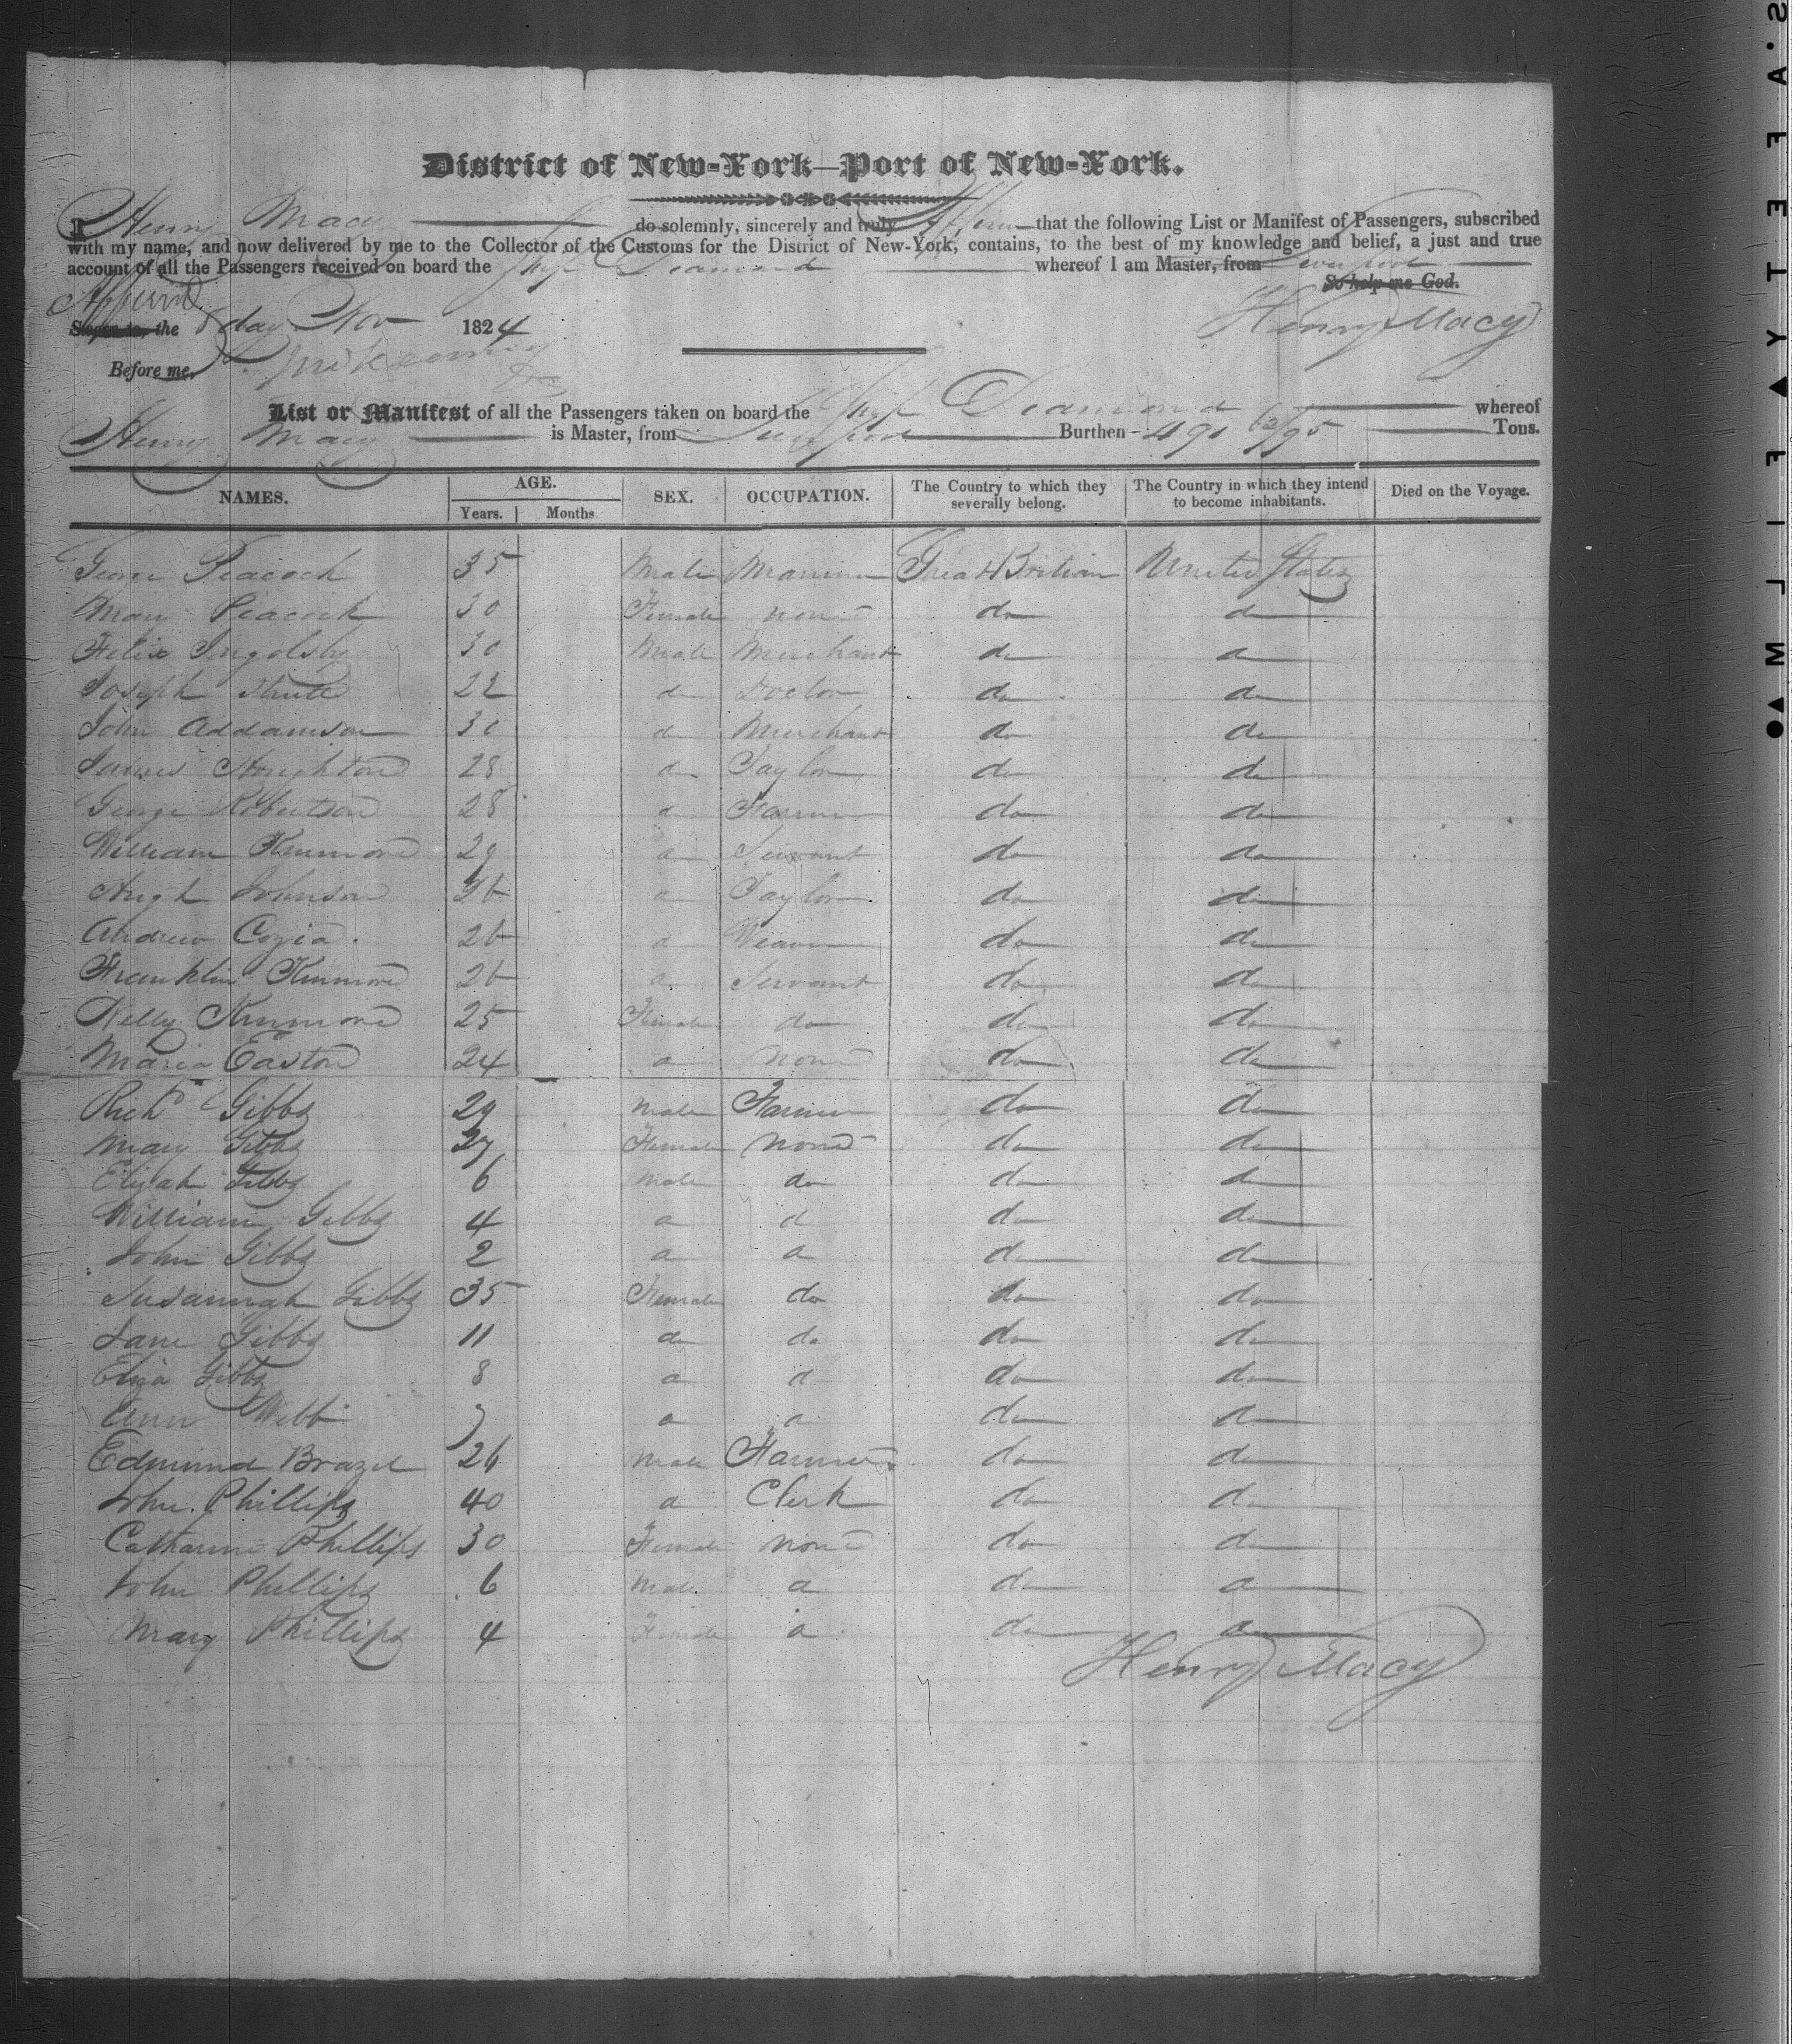 District of New-York—Port of New-York.
I Henry Macy do solemnly, sincerely and truly Affirm that the following List or Manifest of Passengers, subscribed
with my name, and now delivered by me to the Collector of the Customs for the District of New-York, contains, to the best of my knowledge and belief, a just and true
account of all the Passengers received on board the Ship Diamond whereof I am Master, from Liverpool
So help me God.
Affirmd
Sworn to, the 8 day Nov 1824 Henry Macy
Before me,
List or Manifest of all the Passengers taken on board the Ship Diamond whereof
Henry Macy is Master, from Liverpool Burthen 491 62/95 Tons.
NAMES. AGE. SEX. OCCUPATION. The Country to which they severally belong. The Country in which they intend to become inhabitants. Died on the Voyage.
Years. Months
George Peacock 35 Male Mariner Great Britian United States
Mary Peacock 30 Female none do do
Felix Ingolsby 30 Male Merchant do do
Joseph 22 do Doctor do do
John Addamson 30 do Merchant do do
James Houghton 28 do Taylor do do
George Robertson 28 do Farmer do do
William Kenmore 29 do Servant do do
Hugh Johnson 26 do Taylor do do
Andrew 26 do Weaver do do
Franklin Kenmore 26 do Servant do do
Kelly Kenmore 25 Female do do do
Maria Easton 24 do none do do
Richd Gibbs 29 Male Farmer do do
Mary Gibbs 27 Female none do do
Elijah Gibbs 6 Male do do do
William Gibbs 4 do do do do
John Gibbs 2 do do do do
Susannah Gibbs 35 Female do do do
Jane Gibbs 11 do do do do
Eliza Gibbs 8 do do do do
Ann Webb 7 do do do do
Edmund Brazel 26 Male Farmer do do
John Phillips 40 do Clerk do do
Catharine Phillips 30 Female none do do
John Phillips 6 Male do do do
Mary Phillips 4 Female do do do
Henry Macy